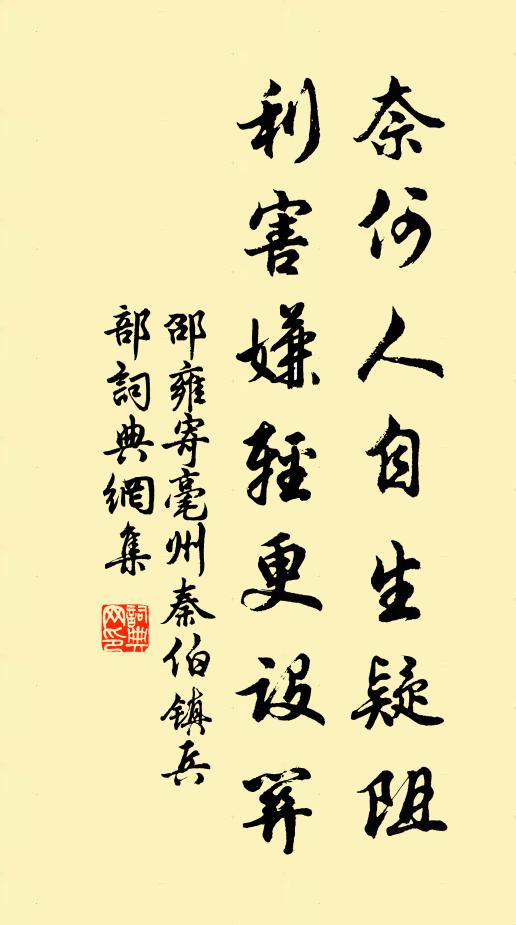 奈何人自生疑阻
利害嫌輕更設
邵雍寄毫州秦伯鎮兵
部詞典網集
詞典
网印